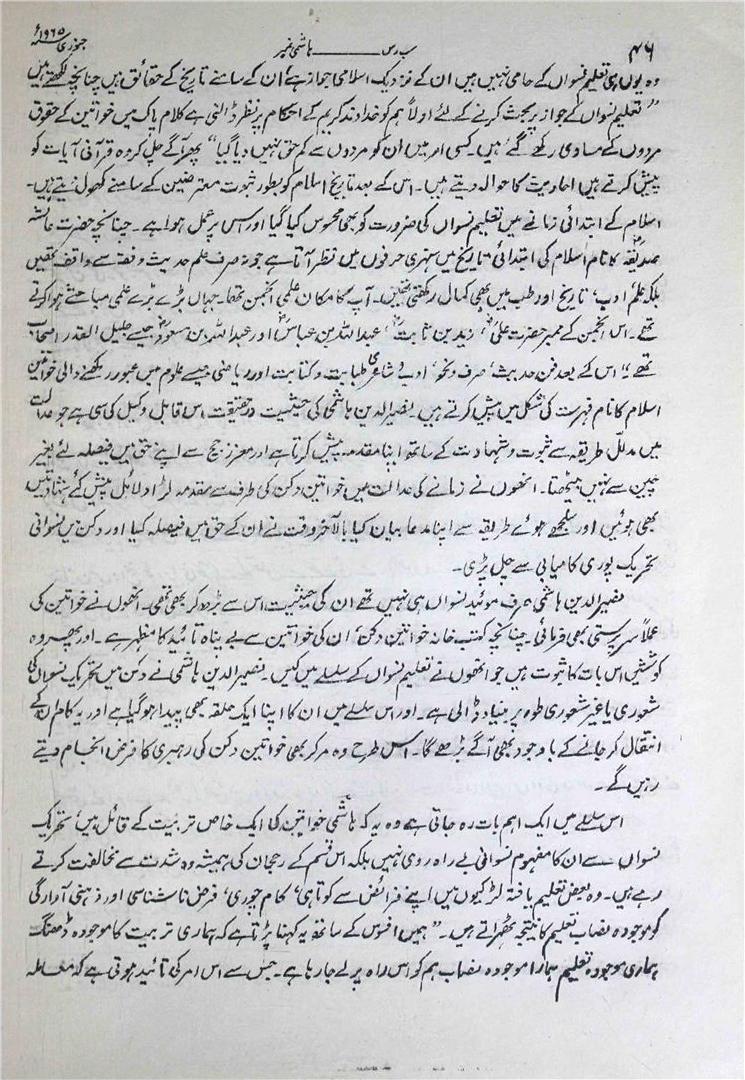 ۴۶
سب رس ــــــ ہاشمی نمبر
جنوری ۱۹۶۵ء
وہ یوں ہی تعلیم نسواں کے حامی نہیں ہیں ان کے نزدیک اسلامی جواز ہے ان کے سامنے تاریخ کے حقائق ہیں چنانچہ لکھتے ہیں
"تعلیم نسواں کے جواز پر بحث کرنے کے لئے اولاً ہم کو خداوند کریم کے احکام پر نظر ڈالنی ہے کلام پاک میں خواتین کے حقوق
مردوں کے مساوی رکھے گئے ہیں۔ کسی امر میں ان کو مردوں سے کم حق نہیں دیا گیا" پھر آگے چل کر وہ قرآنی آیات کو
پیش کرتے ہیں احادیث کا حوالہ دیتے ہیں۔ اس کے بعد تاریخ اسلام کو بطور ثبوت معترضین کے سامنے کھول دیتے ہیں۔
اسلام کے ابتدائی زمانے میں تعلیم نسواں کی ضرورت کو بھی محسوس کیا گیا اور اس پر عمل ہوا ہے۔ چنانچہ حضرت عائشہ
صدیقہؓ کا نام اسلام کی ابتدائی تاریخ میں سنہری حرفوں میں نظر آتا ہے جو نہ صرف علم حدیث و فقہ سے واقف تھیں
بلکہ علم ادب، تاریخ اور طب میں بھی کمال رکھتی تھیں۔ آپ کا مکان علمی انجمن تھا۔ جہاں بڑے بڑے علمی مباحثے ہوا کرتے
تھے۔ اس انجمن کے ممبر حضرت علیؓ، زید بن ثابتؓ، عبداللہ بن عباسؓ اور عبداللہ بن مسعودؓ جیسے جلیل القدر اصحاب
تھے۔" اس کے بعد فن حدیث، صرف و نحو، ادب و شاعری طبابت و کتابت اور ریاضی جیسے علوم میں عبور رکھنے والی خواتین
اسلام کا نام فہرست کی شکل میں پیش کرتے ہیں۔ نصیر الدین ہاشمی کی حیثیت درحقیقت اس قابل وکیل کی سی ہے جو عدالت
میں مدلل طریقہ سے ثبوت و شہادت کے ساتھ اپنا مقدمہ پیش کرتا ہے اور معزز جج سے اپنے حق میں فیصلہ لئے بغیر
چین سے نہیں بیٹھتا۔ انھوں نے زمانے کی عدالت میں خواتین دکن کی طرف سے مقدمہ لڑا دلائل پیش کئے شہادتیں
بھی ہوئیں اور سلجھے ہوئے طریقہ سے اپنا مدعا بیان کیا بالآخر وقت نے ان کے حق میں فیصلہ کیا اور دکن میں نسوانی
تحریک پوری کامیابی سے چل پڑی۔
نصیر الدین ہاشمی صرف موئید نسواں ہی نہیں تھے ان کی حیثیت اس سے بڑھ کر بھی تھی۔ انھوں نے خواتین کی
عملاً سرپرستی بھی فرمائی۔ چنانچہ کتب خانہ خواتین دکن، ان کی خواتین سے بے پناہ تائید کا مظہر ہے۔ اور پھر وہ
کوششیں اس بات کا ثبوت ہیں جو انھوں نے تعلیم نسواں کے سلسلے میں کیں۔ نصیر الدین ہاشمی نے دکن میں تحریک نسواں کی
شعوری یا غیر شعوری طور پر بنیاد ڈالی ہے۔ اور اس سلسلے میں ان کا اپنا ایک حلقہ بھی پیدا ہو گیا ہے اور یہ کام ان کے
انتقال کر جانے کے باوجود بھی آگے بڑھے گا۔ اس طرح وہ مر کر بھی خواتین دکن کی رہبری کا فرض انجام دیتے
رہیں گے۔
اس سلسلے میں ایک اہم بات رہ جاتی ہے وہ یہ کہ ہاشمی خواتین کی ایک خاص تربیت کے قائل ہیں، تحریک
نسواں سے ان کا مفہوم نسوانی بے راہ روی نہیں بلکہ اس قسم کے رجحان کی ہمیشہ وہ شدت سے مخالفت کرتے
رہے ہیں۔ وہ بعض تعلیم یافتہ لڑکیوں میں اپنے فرائض سے کوتاہی، کام چوری، فرض ناشناسی اور ذہنی آوارگی
کو موجودہ نصاب تعلیم کا نتیجہ ٹھہراتے ہیں۔ "ہمیں افسوس کے ساتھ یہ کہنا پڑتا ہے کہ ہماری تربیت کا موجودہ ڈھنگ
ہماری موجودہ تعلیم ہمارا موجودہ نصاب ہم کو اس راہ پر لے جا رہا ہے۔ جس سے اس امر کی تائید ہوتی ہے کہ معاملہ